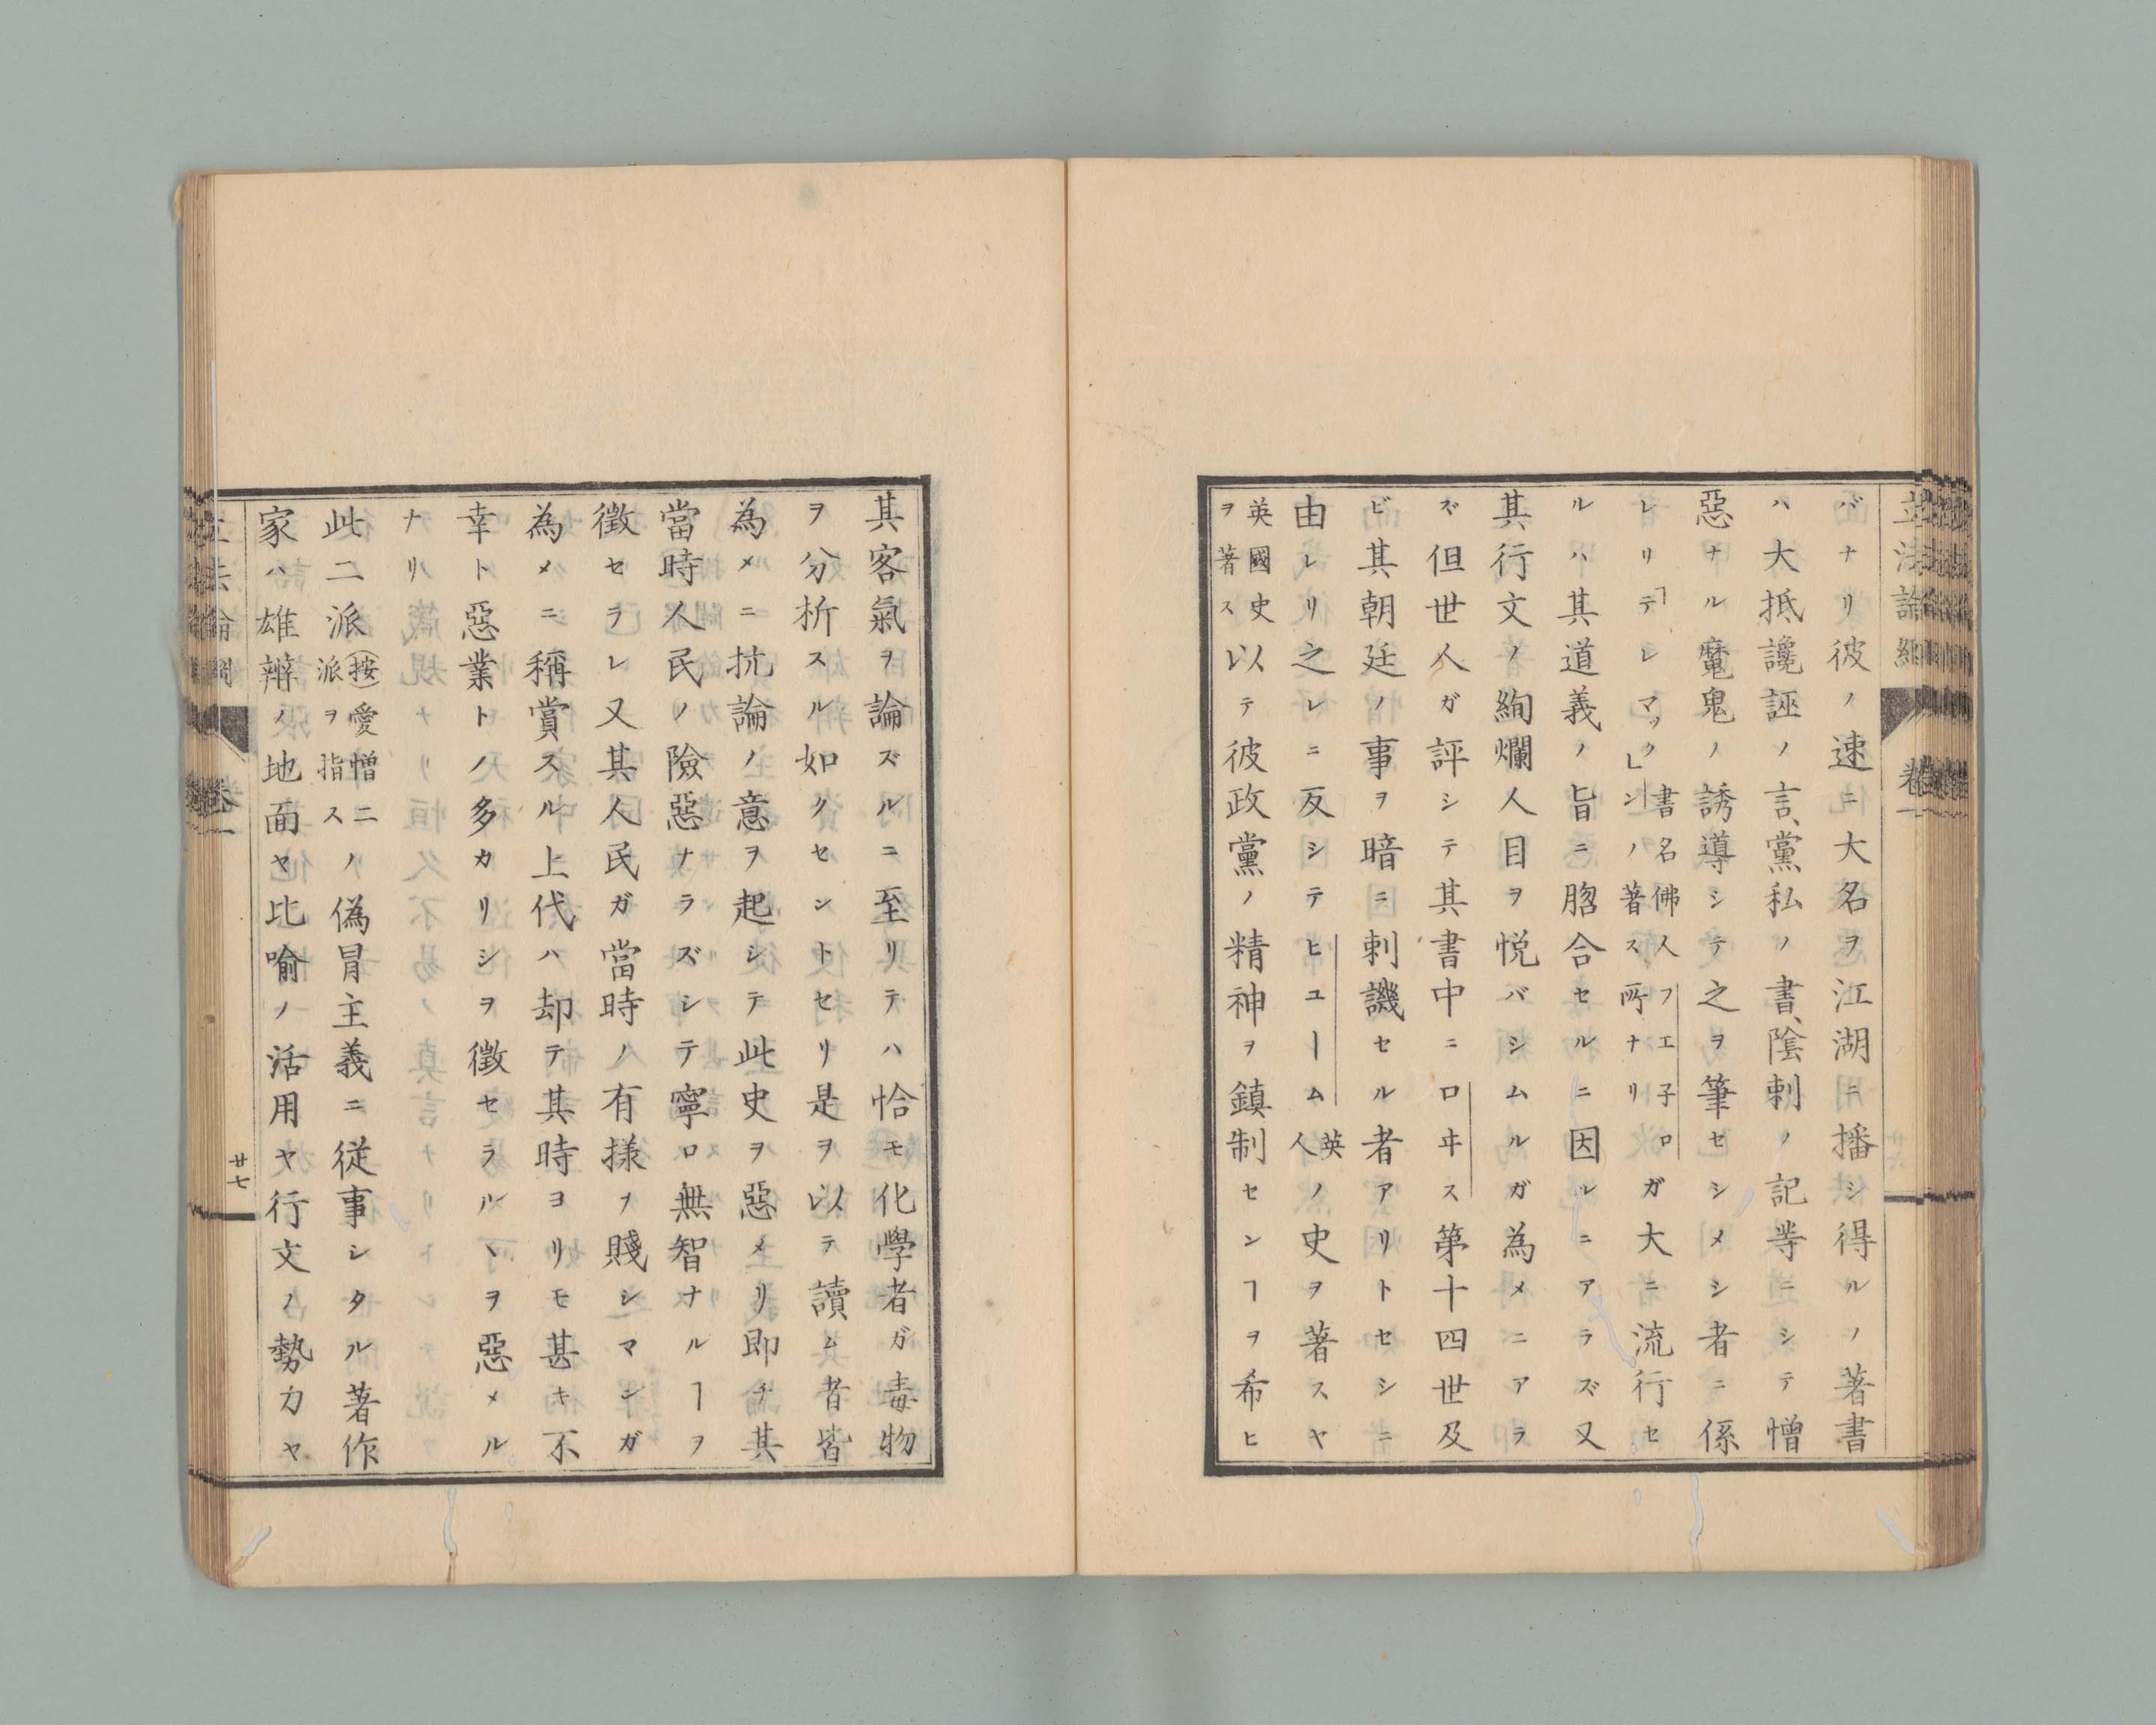 立法論綱
卷一
バナリ彼ノ速ニ大名ヲ江湖ニ播シ得ルノ著書
ハ大抵讒誣ノ言、黨私ノ書、陰刺ノ記等ニシテ憎
惡ナル魔鬼ノ誘導シテ之ヲ筆セシメシ者ニ係
レリ「テレマックン」書名佛人フエ子ロンノ著ス所ナリガ大ニ流行セ
ルハ其道義ノ旨ニ脗合セルニ因ルニアラズ又
其行文ノ絢爛人目ヲ悦バシムルガ為メニアラ
ズ但世人ガ評シテ其書中ニロヰス第十四世及
ビ其朝廷ノ事ヲ暗ニ刺譏セル者アリトセシニ
由レリ之レニ反シテヒユーム英人ノ史ヲ著スヤ
英國史ヲ著ス以テ彼政黨ノ精神ヲ鎮制センヿヲ希ヒ
其客氣ヲ論ズルニ至リテハ恰モ化學者ガ毒物
ヲ分析スル如クセントセリ是ヲ以テ讀ム者皆
為メニ抗論ノ意ヲ起シテ此史ヲ惡メリ即チ其
當時人民ノ險惡ナラズシテ寧ロ無智ナルヿヲ
徵セラレ又其人民ガ當時ノ有様ヲ賤シマンガ
為メニ稱賞スル上代ハ却テ其時ヨリモ甚キ不
幸ト惡業トノ多カリシヲ徵セラルヽヲ惡メル
ナリ
此二派(按)愛憎二派ヲ指スノ偽冒主義ニ従事シタル著作
家ハ雄辨ノ地面ヤ比喩ノ活用ヤ行文ノ勢力ヤ
卷一
廿七